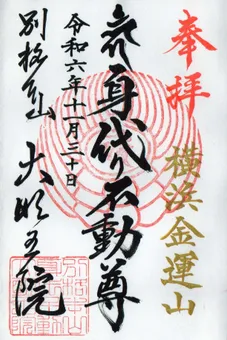 奉拝
横浜金運山
身代り不動尊
令和六年十一月三十日
別格本山
大明王院